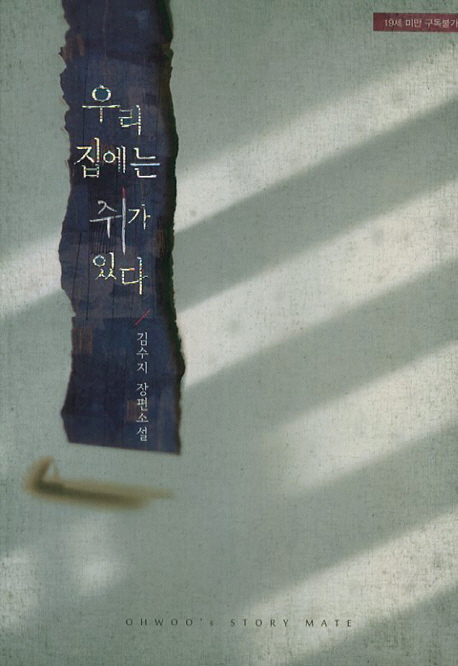 19세 미만 구독불가
우리
집에는
쥐가
있다
김수지 장편소설
OHWOO's STORY MATE